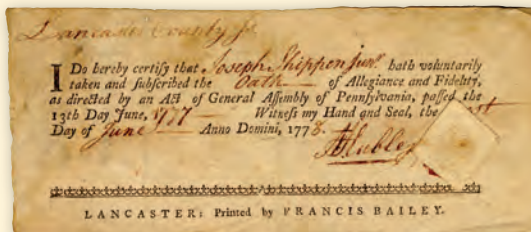 Lancaster County Ss
I Do hereby certify that Joseph Shippen Junr. hath voluntarily
taken and subscribed the Oath of Allegiance and Fidelity,
as directed by an Act of General Assembly of Pennsylvania, passed the
13th Day June, 1777 Witness my Hand and Seal, the
Day of June Anno Domini, 1778.
Hubley
LANCASTER: Printed by FRANCIS BAILEY.